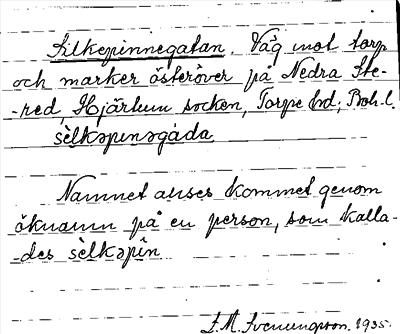 Silkepinnegatan. Väg mot torp
och marker österöver på Nedra Ste-
-red, Hjärtum socken, Torpe hd, Boh. l.
sèlkəpinəgáda
Namnet anses kommet genom
öknamn på en person, som kalla-
-des sèlkəpin